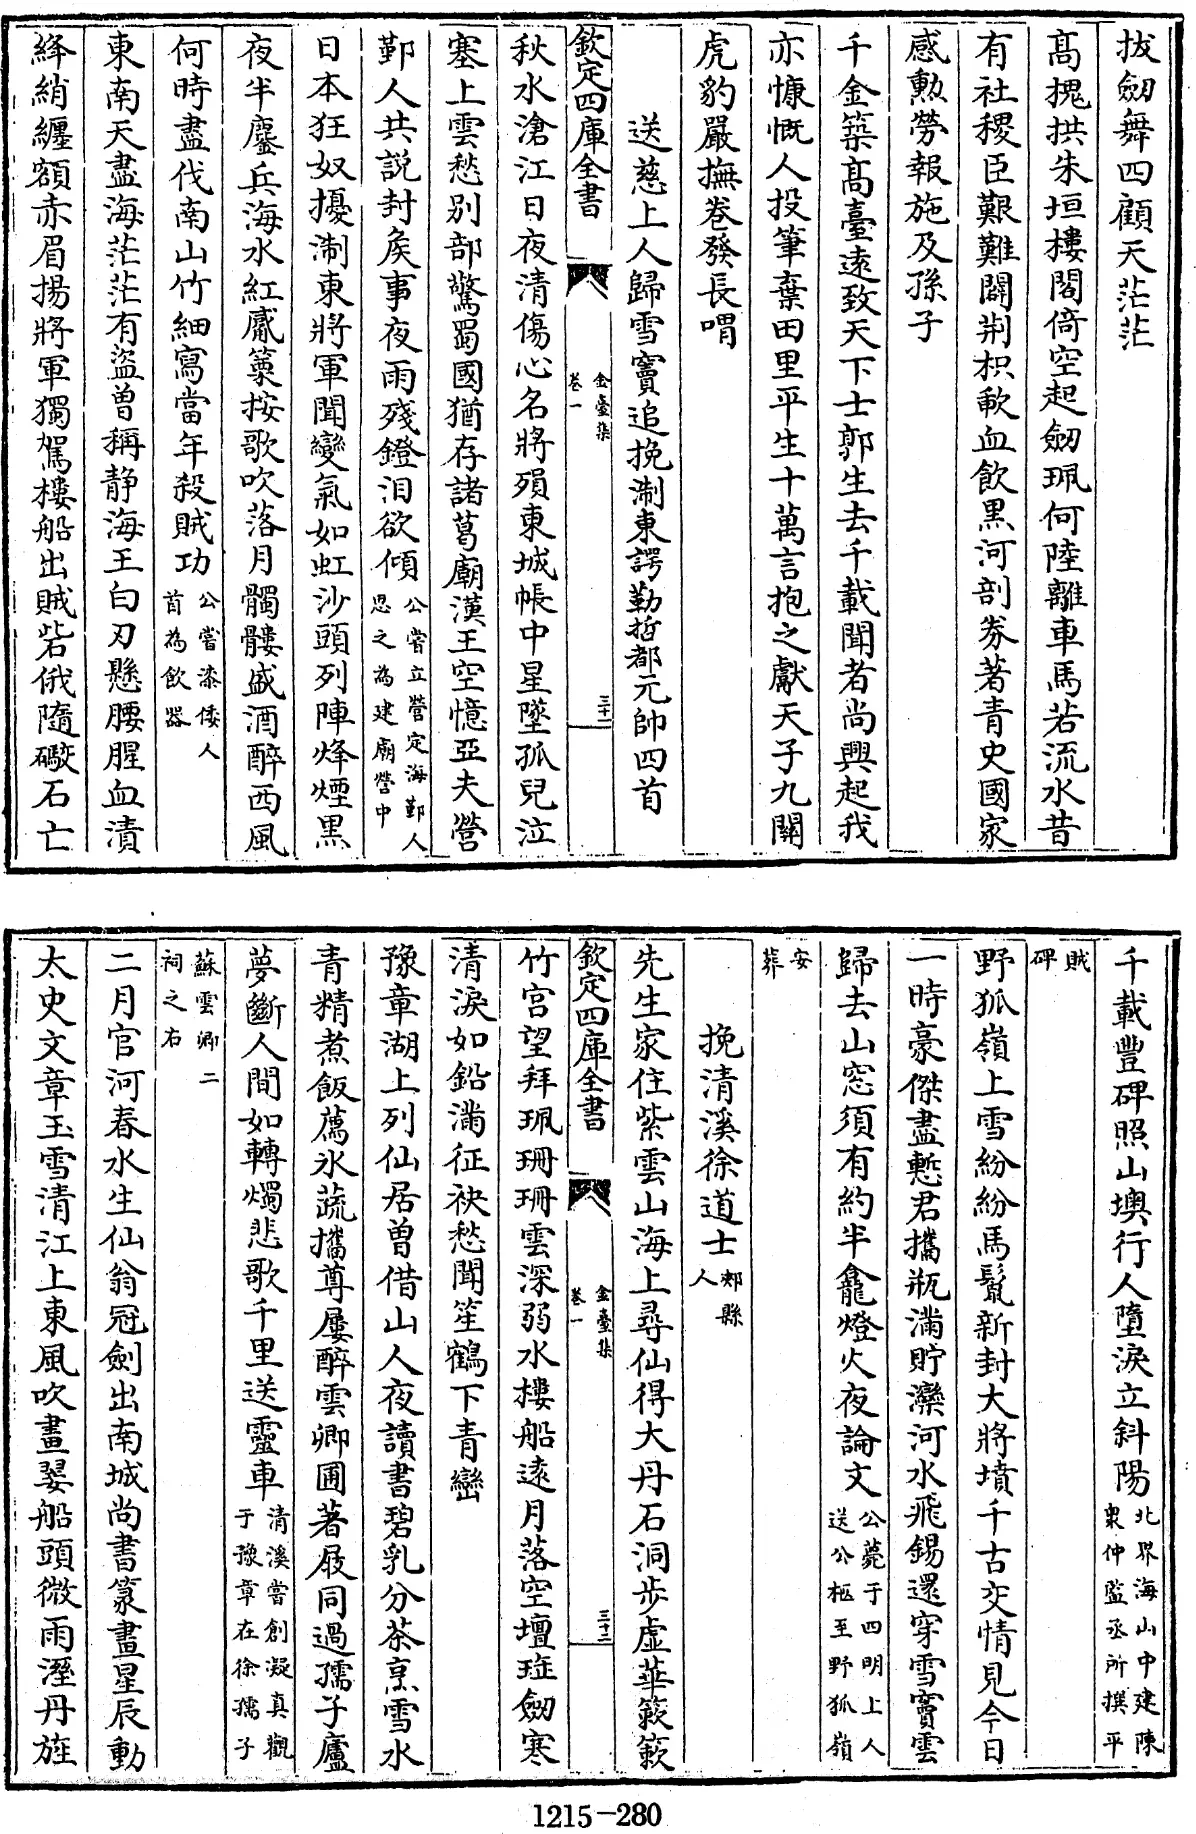 拔劒舞四顧天茫茫
髙槐拱朱垣樓閣倚空起劒珮何陸離車馬若流水昔
有社稷臣艱難闢荆枳歃血飲黒河剖券著青史國家
感勲勞報施及孫子
千金築髙臺逺致天下士郭生去千載聞者尚興起我
亦慷慨人投筆棄田里平生十萬言抱之獻天子九關
虎豹嚴撫卷發長喟
送慈上人歸雪竇追挽淛東諤勒哲都元帥四首
欽定四庫全書
金臺集
卷一
三十一
秋水滄江日夜清傷心名將殞東城帳中星墜孤兒泣
塞上雲愁别部驚蜀國猶存諸葛廟漢王空憶亞夫營
鄞人共説封侯事夜雨殘鐙泪欲傾公嘗立營定海鄞人
思之為建廟營中
日本狂奴擾淛東將軍聞變氣如虹沙頭列陣烽煙黒
夜半鏖兵海水紅觱篥按歌吹落月髑髏盛酒醉西風
何時盡伐南山竹細寫當年殺賊功公嘗漆倭人
首為飲器
東南天盡海茫茫有盜曽稱静海王白刃懸腰腥血漬
絳綃纏額赤眉揚將軍獨駕樓船出賊砦俄隨礟石亡
千載豐碑照山墺行人墮淚立斜陽北界海山中建陳
衆仲監丞所撰平
賊
碑
野狐嶺上雪紛紛馬鬛新封大將墳千古交情見今日
一時豪傑盡慙君攜瓶滿貯灤河水飛錫還穿雪竇雲
歸去山窓須有約半龕燈火夜論文公薨于四明上人
送公柩至野狐嶺
安
葬
挽清溪徐道士鄴縣
人
先生家住紫雲山海上尋仙得大丹石洞步虚華簌簌
欽定四庫全書
金臺集
卷一
三十二
竹宫望拜珮珊珊雲深弱水樓船逺月落空壇琁劒寒
清淚如鉛滿征袂愁聞笙鶴下青巒
豫章湖上列仙居曽借山人夜讀書碧乳分茶烹雪水
青精煮飯薦氷蔬攜尊屢醉雲卿圃著屐同過孺子廬
夢斷人間如轉燭悲歌千里送靈車清溪嘗創凝真觀
于豫章在徐孺子
蘇雲卿二
祠之右
二月官河春水生仙翁冠劍出南城尚書篆畫星辰動
太史文章玉雪清江上東風吹畫翣船頭微雨溼丹旌
1215-280